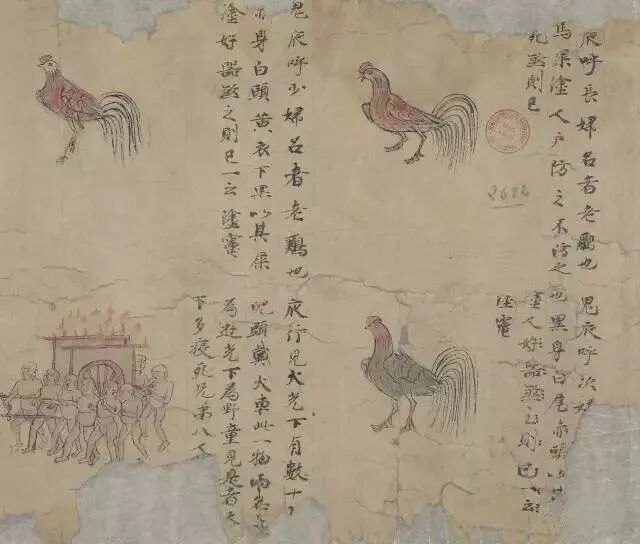 夜呼長婦名者老鷄也
馬屎塗人戶防之不防之
死煞則已
鬼夜呼次婦
也黑身白尾赤頭以其
塗人好器煞之則已一云
塗竈
鬼夜呼少婦名者老鷄也
身白頭黃衣下黑以其屎
塗好器煞之則已一云塗竈
夜行見火光下有數十
兒頭戴火車此一物兩名上
為遊光下為野童見是者天
下多疫死兄弟八人
2682